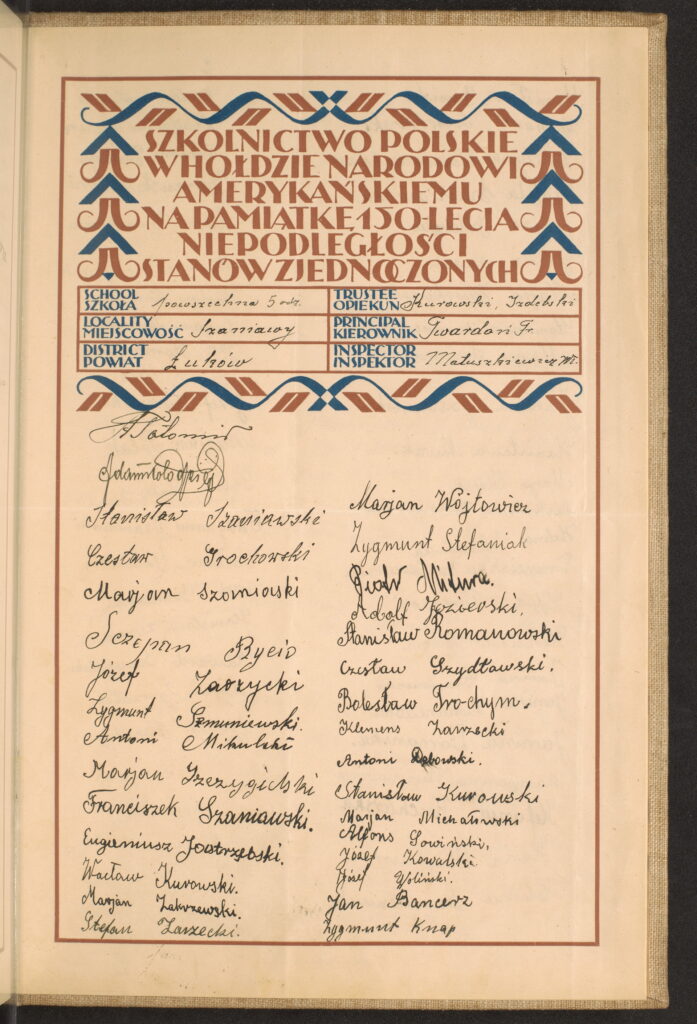 SZKOLNICTWO POLSKIE
W HOŁDZIE NARODOWI
AMERYKAŃSKIEMU
NA PAMIĄTKE 150-LECIA
NIEPODLEGŁOŚCI
STANÓW ZJEDNOCZONYCH
SCHOOL
SZKOŁA powszechna 5 odz.
TRUSTEE
OPIEKUN Kurowski, Izdebski
LOCALITY
MIEJSCOWOŚĆ Szaniawy
PRINCIPAL
KIEROWNIK Twardoń Fr.
DISTRICT
POWIAT Łuków
INSPECTOR
INSPEKTOR Matuszkiewicz Wł.
Stanisław Szaniawski
Czesław Grochowski
Marjan
Sczepan Rycio
Józef Zaorzycki
Zygmunt
Antoni Mikulski
Marjan
Franciszek Szaniawski.
Eugieniusz Jastrzębski.
Wacław Kurowski.
Marjan Zakrzewski.
Stefan Zarzecki.
Marjan Wójtowicz
Zygmunt Stefaniak
Piotr Mitura.
Adolf
Stanisław Romanowski
Czesław Szydławski.
Bolesław Trochym.
Klemens Zarzecki
Antoni Dębowski.
Stanisław Kurowski
Marjan Michałowski
Alfons Sowiński,
Józef Kowalski
Józef Woliński.
Jan Bancerz
Zygmunt Knap